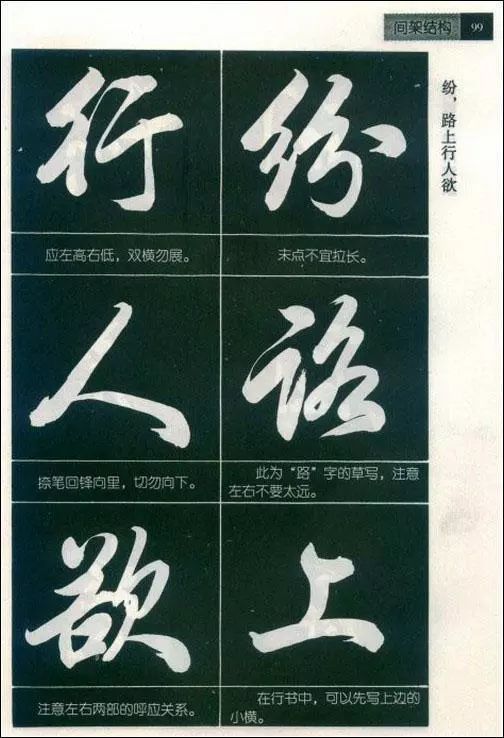 间架结构 99
纷，路上行人欲
纷
末点不宜拉长。
路
此为“路”字的草写，注意
左右不要太远。
上
在行书中，可以先写上边的
小横。
行
应左高右低，双横勿展。
人
捺笔回锋向里，切勿向下。
欲
注意左右两部的呼应关系。